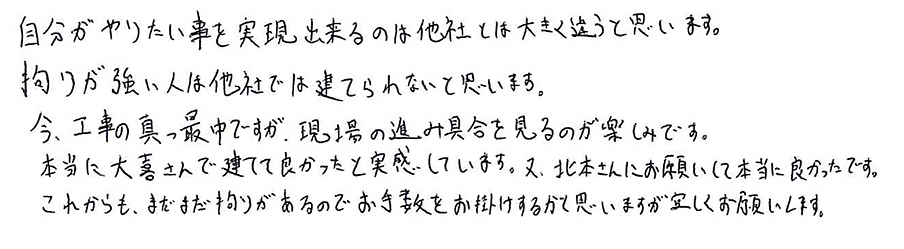 自分がやりたい事を実現出来るのは他社とは大きく違うと思います。
拘りが強い人は他社では建てられないと思います。
今、工事の真っ最中ですが、現場の進み具合を見るのが楽しみです。
本当に大喜さんで建てて良かったと実感しています。又、北本さんにお願いして本当に良かったです。
これからも、まだまだ拘りがあるのでお手数をお掛けするかと思いますが宜しくお願いします。